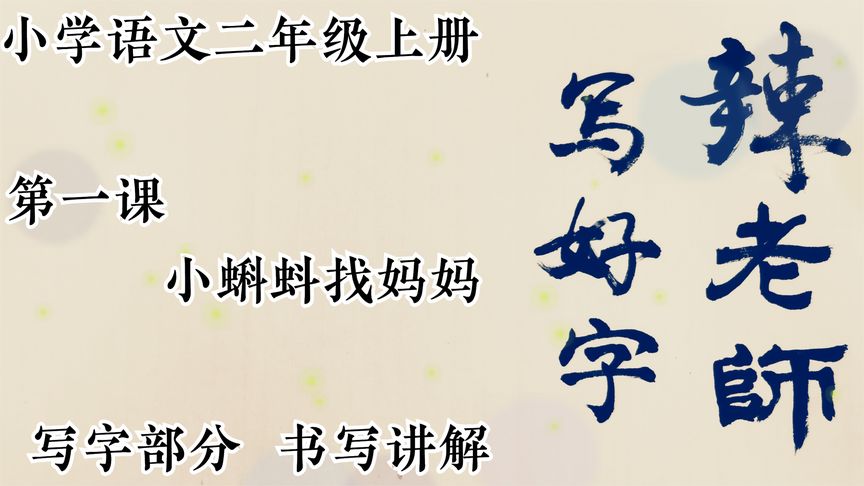 小学语文二年级上册
第一课
小蝌蚪找妈妈
写字部分 书写讲解
辣老師
写好字